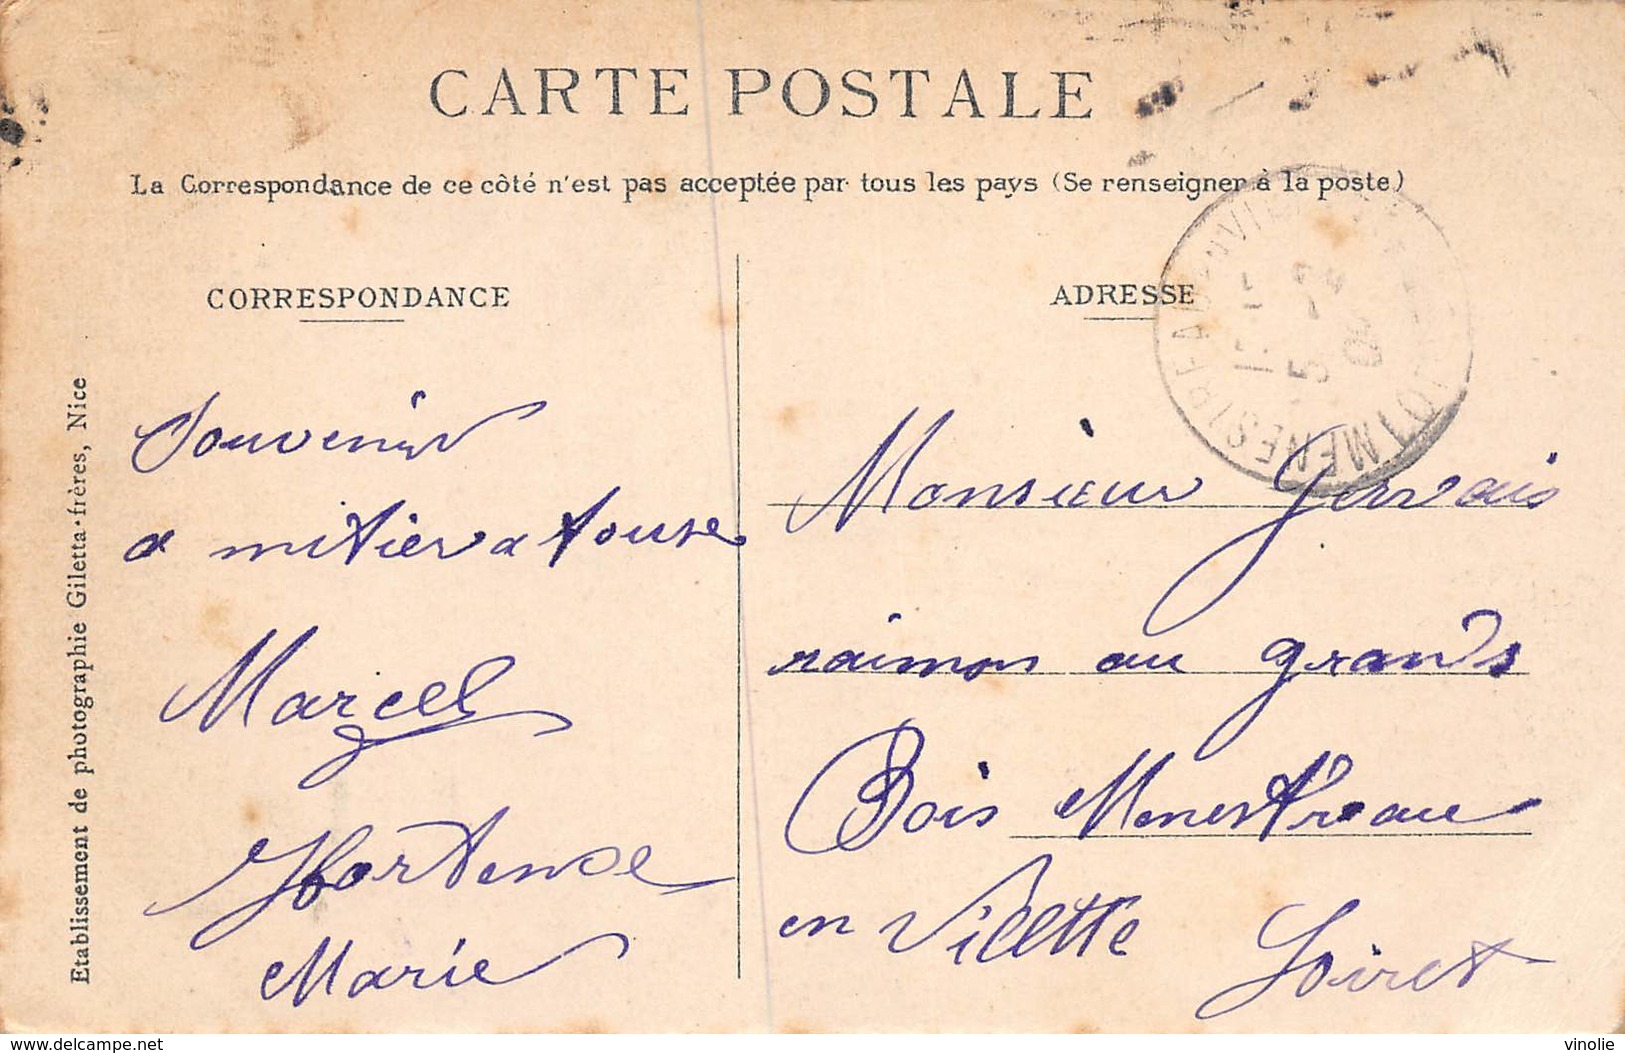 CARTE POSTALE
La Correspondance de ce côté n'est pas acceptée par tous les pays (Se renseigner à la poste)
CORRESPONDANCE
Souvenir
a mitier a touse
Marcel
Hortence
Marie
ADRESSE
Monsieur Gervais
raimon au grands
Bois Menestreau
en Villette
Loiret
Etablissement de photographie Giletta-frères, Nice
delcampe.net
vinolie